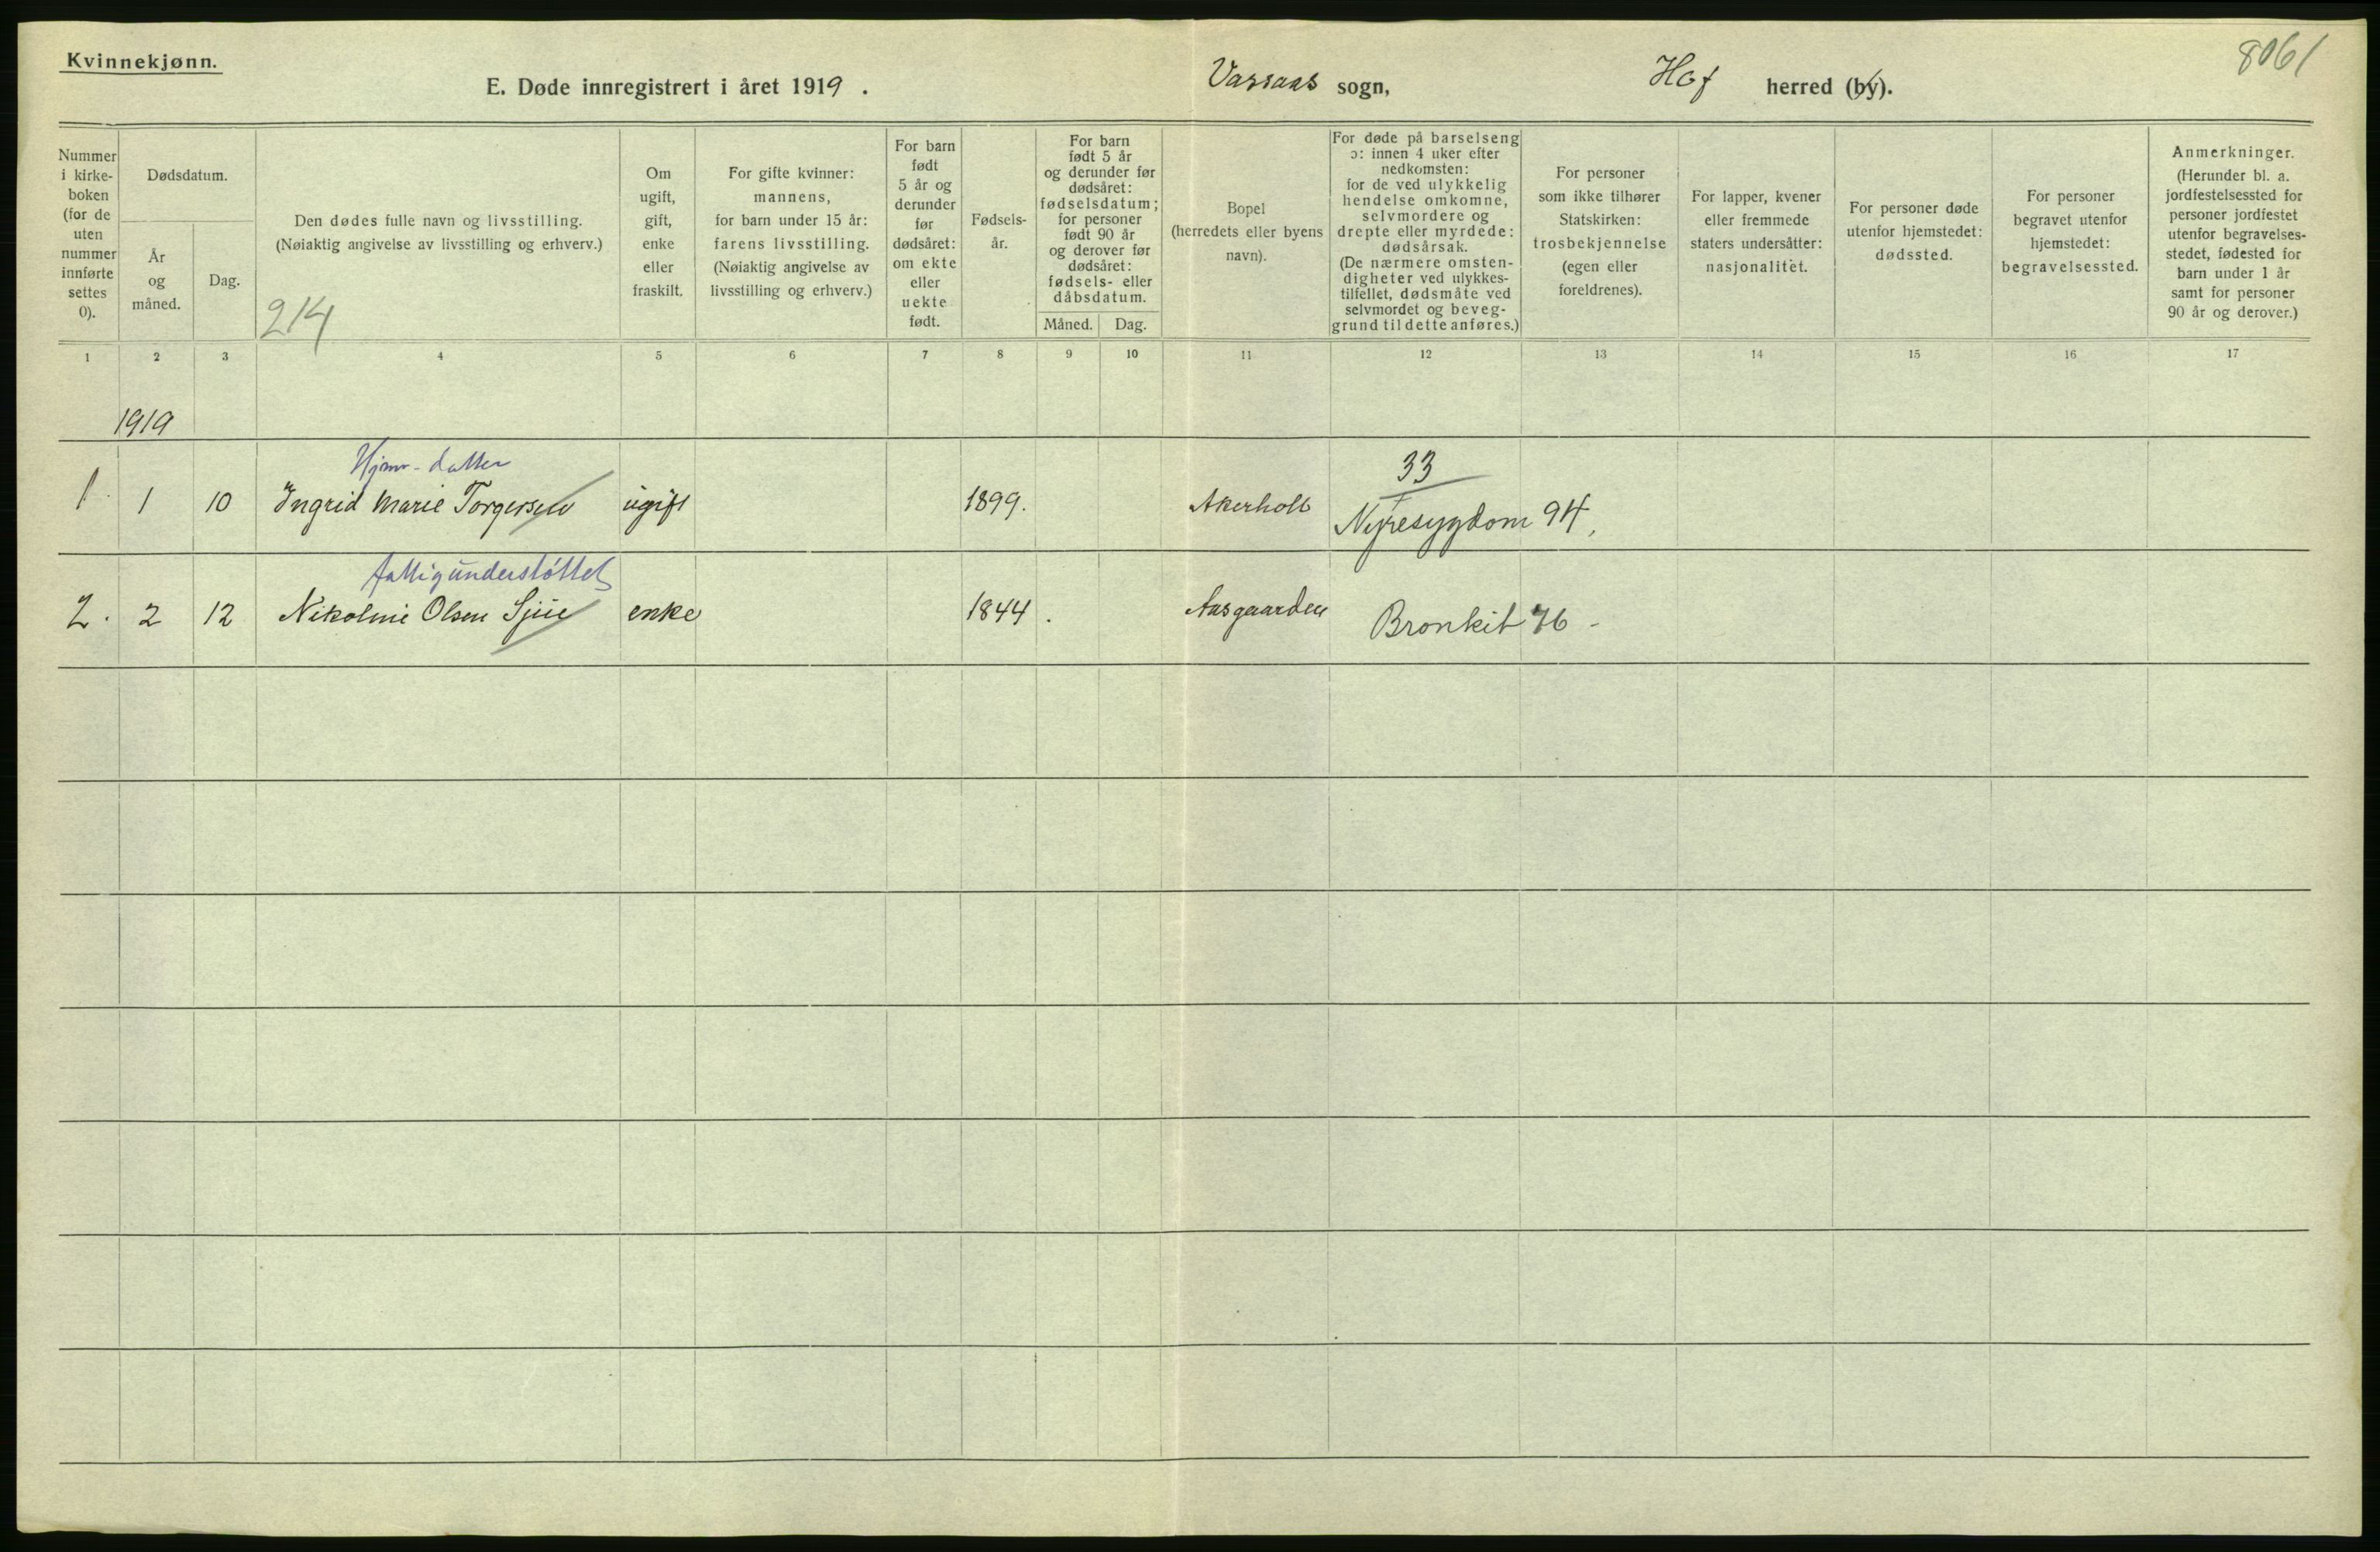 Kvinnekjønn.
8061
E. Døde innregistrert i året 1919.
Vassaas sogn,
Hof herred (by).
Nummer
i kirke-
boken
(for de
uten
nummer
innførte
settes
0).
Dødsdatum.
År
og
måned.
Dag.
Den dødes fulle navn og livsstilling.
(Nøiaktig angivelse av livsstilling og erhverv.)
214
Om
ugift,
gift,
enke
eller
fraskilt.
For gifte kvinner:
mannens,
for barn under 15 år:
farens livsstilling.
(Nøiaktig angivelse av
livsstilling og erhverv.)
For barn
født
5 år og
derunder
før
dødsåret:
om ekte
eller
uekte
født.
Fødsels-
år.
For barn
født 5 år
og derunder før
dødsåret:
fødselsdatum;
for personer
født 90 år
og derover før
dødsåret:
fødsels- eller
dåbsdatum.
Måned.
Dag.
Bopel
(herredets eller byens
navn).
For døde på barselseng
ɔ: innen 4 uker efter
nedkomsten:
for de ved ulykkelig
hendelse omkomne,
selvmordere og
drepte eller myrdede:
dødsårsak.
(De nærmere omsten-
digheter ved ulykkes-
tilfellet, dødsmåte ved
selvmordet og beveg-
grund til dette anføres.)
For personer
som ikke tilhører
Statskirken:
trosbekjennelse
(egen eller
foreldrenes).
For lapper, kvener
eller fremmede
staters undersåtter:
nasjonalitet.
For personer døde
utenfor hjemstedet:
dødssted.
For personer
begravet utenfor
hjemstedet:
begravelsessted.
Anmerkninger.
(Herunder bl. a.
jordfestelsessted for
personer jordfestet
utenfor begravelses-
stedet, fødested for
barn under 1 år
samt for personer
90 år og derover.)
1 2 3 4 5 6 7 8 9 10 11 12 13 14 15 16 17
1919
datter
33
1 1 10 Ingrid Marie Torgersen ugift 1899. Akerholt Nyresygdom 94,
fattigunderstöttet
2. 2 12 Nikoline Olsen enke 1844. Aasgaarden Bronkit 76 -